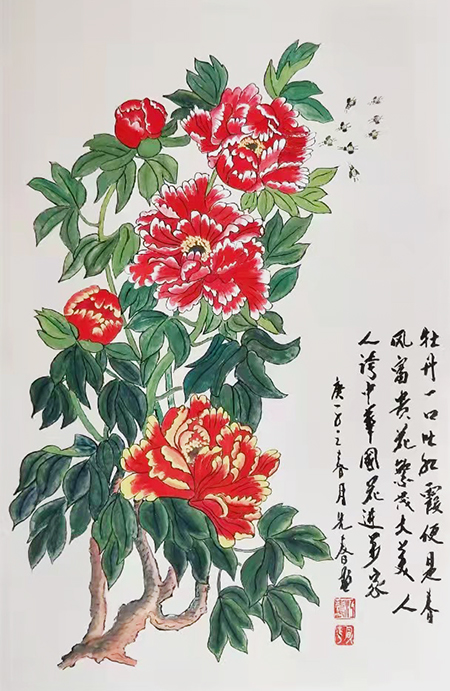 牡丹一口吐红霞便是春
风富贵花繁茂大美人
人誇中華國花進萬家
春月